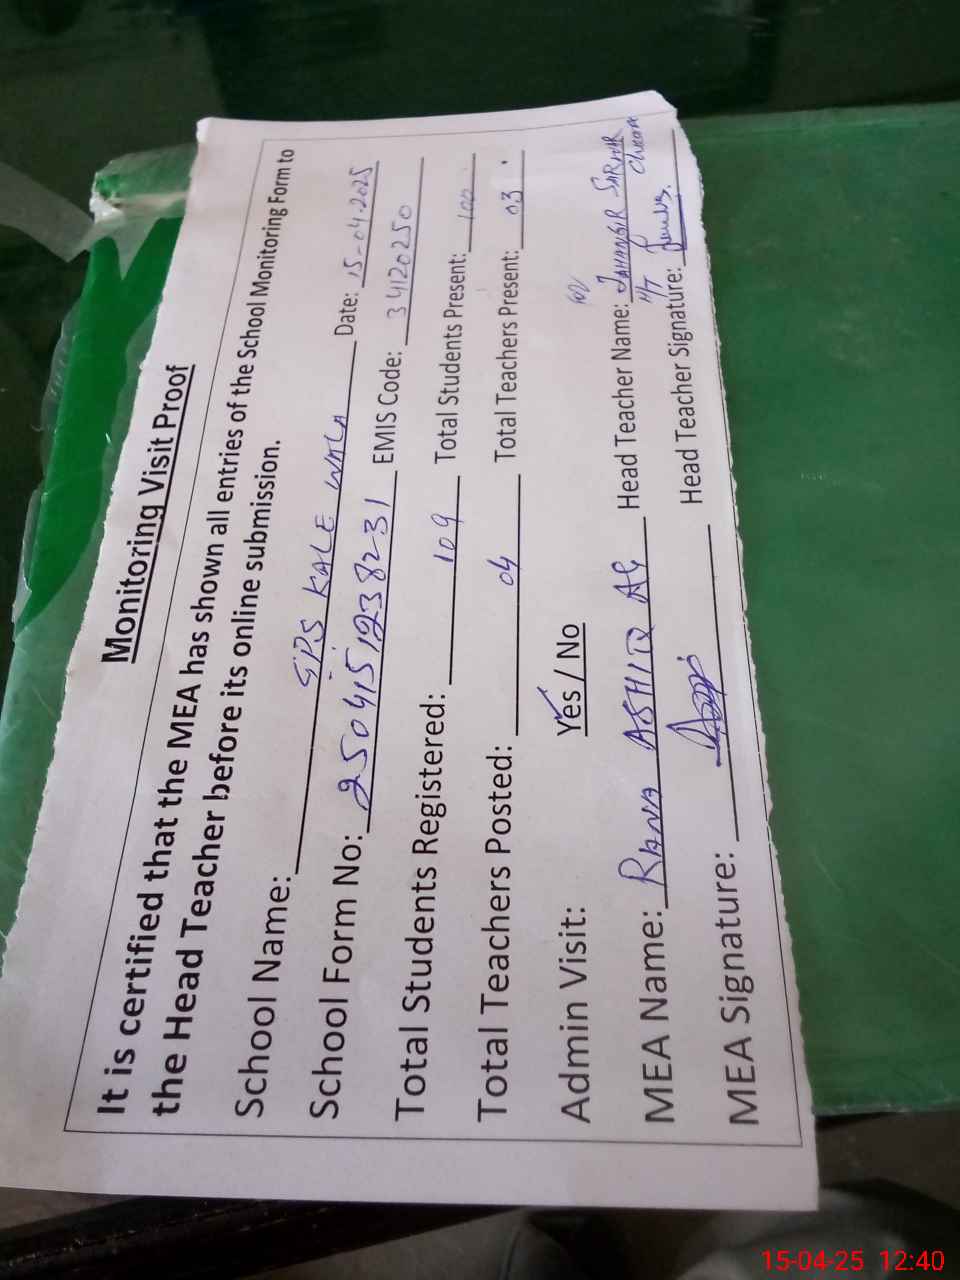 Monitoring Visit Proof
It is certified that the MEA has shown all entries of the School Monitoring Form to
the Head Teacher before its online submission.
School Name: GPS KALE WALA Date: 15-04-2025
School Form No: 250415123 8231 EMIS Code: 34120250
Total Students Registered: 109 Total Students Present: 100
Total Teachers Posted: 04 Total Teachers Present: 03
Admin Visit: Yes / No
MEA Name: RANA ASHIQ Head Teacher Name: JAHANGIR SARWAR
H/T
MEA Signature: Head Teacher Signature:
15-04-25 12:40